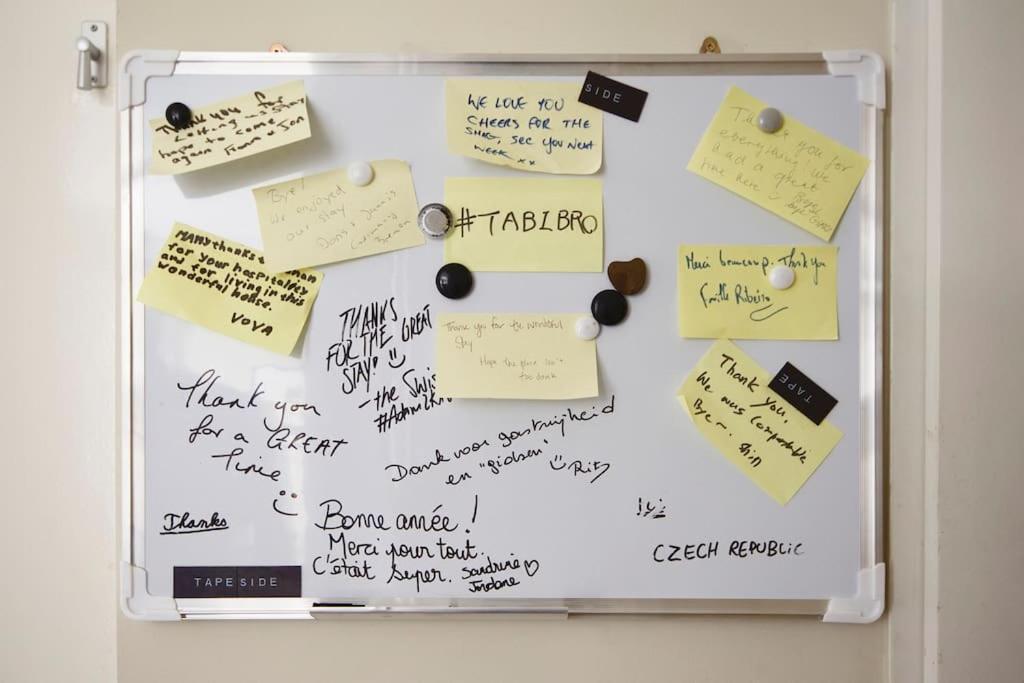 Thank you for
Letting us stay
hope to come
again
Jon
WE LOVE YOU
CHEERS FOR THE
SHAG, SEE YOU NEXT
WEEK xx
SIDE
Thank you for
everything! We
had a great
time here
Bye!
We enjoyed
our stay
#TABIBRO
MANY thanks
for your hospitaley
and for living in this
wonderful house.
VOVA
Merci beaucoup. Thank you
Famille Ribeiro
THANKS
FOR THE GREAT
STAY!
- the Swis
Thank you for the wonderful
stay
Hope the place isn't
too dank
Thank you,
We was Comfortable
Bye~.
TAPE
Thank you
for a GREAT
Time
Dank voor gastvrijheid
en "gidsen"
Thanks
Bonne année!
Merci pour tout.
C'était super. Sandrine
Jordane
CZECH REPUBLIC
TAPE SIDE